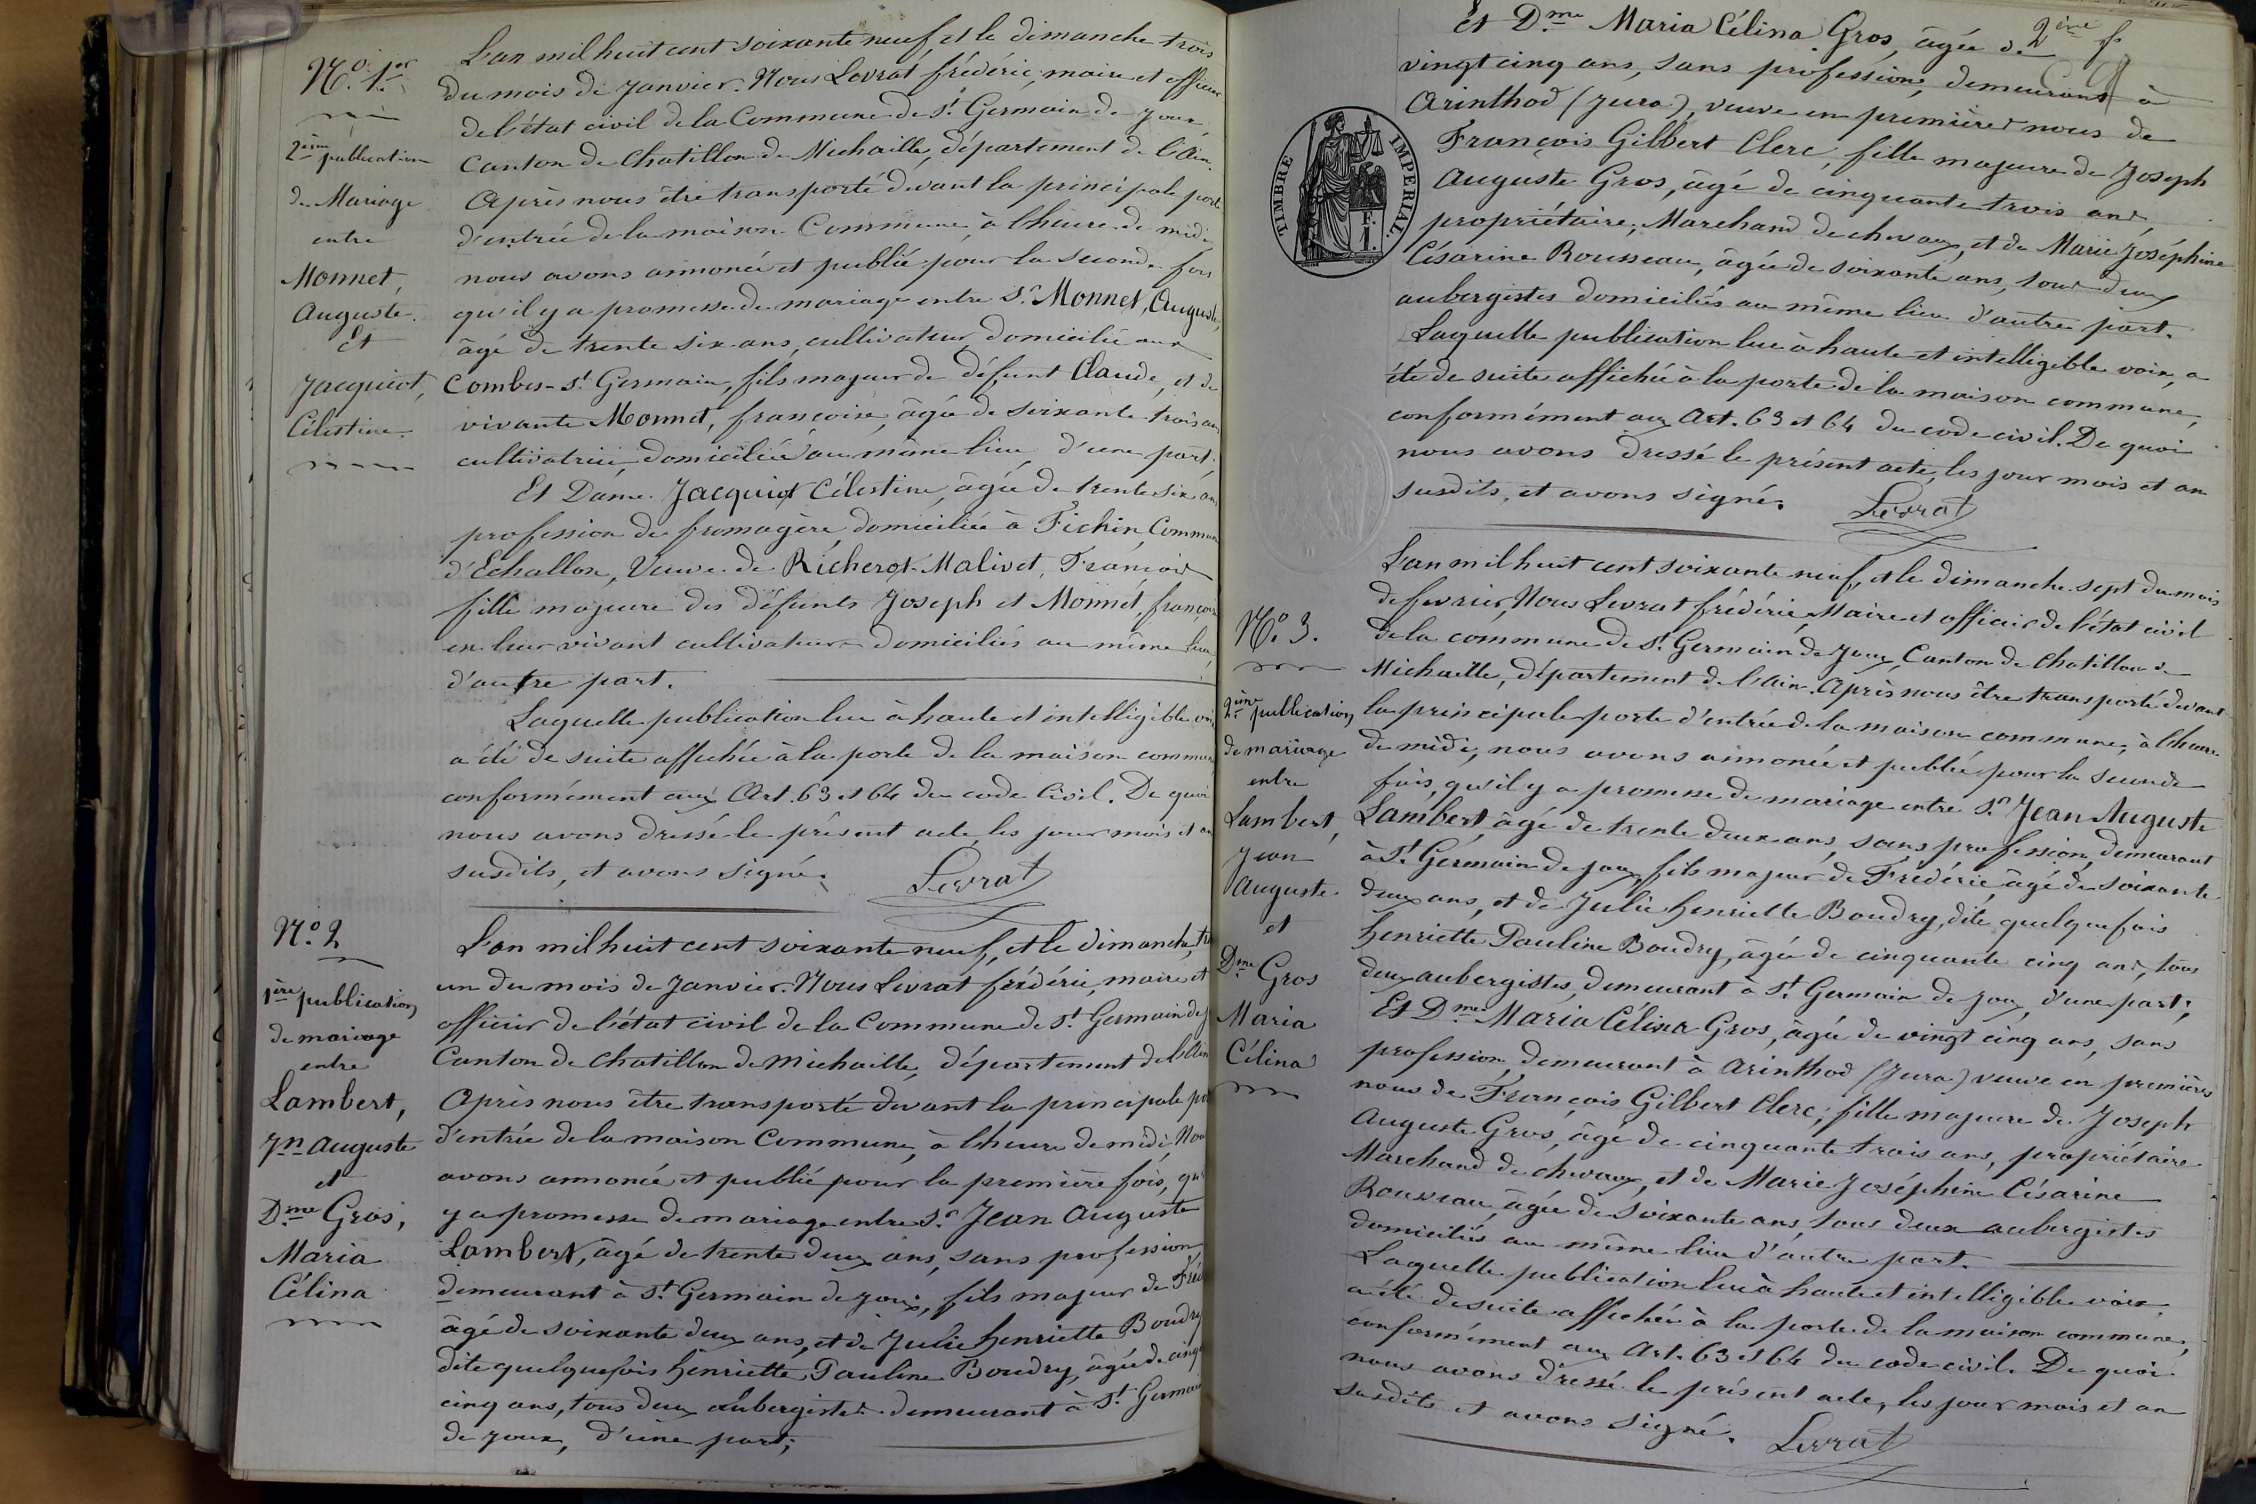 N.o 1.er
2ème publication
de Mariage
entre
Monnet,
Auguste.
Et
Jacquiot,
Célestine.
L'an mil huit cent soixante neuf, et le dimanche trois
du mois de Janvier. Nous Levrat frédéric, maire et officier
de l'état civil de la Commune de St Germain de Joux,
Canton de Chatillon de Michaille, département de l'Ain.
Après nous être transporté devant la principale porte
d'entrée de la maison Commune, à l'heure de midi,
nous avons annoncé et publié pour la seconde fois
qu'il y a promesse de mariage entre Sr Monnet, Auguste,
âgé de trente six ans, cultivateur, domicilié aux
Combes-St Germain, fils majeur de défunt Claude, et de
vivante Monnet, françoise, âgée de soixante trois ans
cultivatrice, domiciliée au même lieu, d'une part.
Et Dame Jacquiot Célestine, âgée de trente six ans
profession de fromagère, domiciliée à Fichin, Commune
d'Echallon, Veuve de Richerot-Malivet, François
fille majeure des défunts Joseph et Monnet, françoise
en leur vivant cultivateurs domiciliés au même lieu,
d'autre part.
Laquelle publication lue à haute et intelligible voix
a été de suite affichée à la porte de la maison commune
conformément aux Art. 63 et 64 du code Civil. De quoi
nous avons dressé le présent acte, les jour mois et an
susdits, et avons signé.
Levrat
N.o 2
1ère publication
de mariage
entre
Lambert,
Jn Auguste
et
Dme Gros,
Maria
Célina
L'an mil huit cent soixante neuf, et le dimanche, tre
un du mois de Janvier. Nous Levrat frédéric, maire et
officier de l'état civil de la Commune de St Germain de J
Canton de Chatillon de Michaille, département de l'Ain
Après nous être transporté devant la principale por
d'entrée de la maison Commune, à l'heure de midi, Nou
avons annoncé et publié pour la première fois, qu'
y a promesse de mariage entre Sr Jean Auguste
Lambert, âgé de trente deux ans, sans profession
demeurant à St Germain de joux, fils majeur de Fréd
âgé de soixante deux ans, et de Julie henriette Boudry
dite quelquefois henriette Pauline Boudry, âgée de cinqu
cinq ans, tous deux aubergistes demeurant à St Germain
de joux, d'une part;
2ème f
Et Dme Maria Célina Gros, âgée de
vingt cinq ans, sans profession, demeurant à
Arinthod (Jura), veuve en premières nous de
François Gilbert Clerc, fille majeure de Joseph
Auguste Gros, âgé de cinquante trois ans,
propriétaire, Marchand de chevaux, et de Marie Joséphine
Césarine Rousseau, âgée de soixante ans, tous deux
aubergistes domiciliés au même lieu d'autre part.
Laquelle publication lue à haute et intelligible voix, a
été de suite affichée à la porte de la maison commune,
conformément aux Art. 63 et 64 du code civil. De quoi
nous avons dressé le présent acte, les jour mois et an
susdits, et avons signé.
Levrat
TIMBRE IMPERIAL.
F.
1.
N.o 3.
2ème publication
de mariage
entre
Lambert,
Jean
Auguste
et
Dme Gros
Maria
Célina
L'an mil huit cent soixante neuf, et le dimanche sept du mois
de fevrier, Nous Levrat frédéric, Maire et officier de l'état civil
de la commune de St Germain de Joux, Canton de Chatillon de
Michaille, département de l'Ain. Après nous être transporté devant
la principale porte d'entrée de la maison commune, à l'heure
de midi, nous avons annoncé et publié pour la seconde
fois, qu'il y a promesse de mariage entre Sr Jean Auguste
Lambert, âgé de trente deux ans, sans profession, demeurant
à St Germain de joux, fils majeur de Frédéric, âgé de soixante
deux ans, et de Julie henriette Boudry, dite quelquefois
henriette Pauline Boudry, âgée de cinquante cinq ans, tous
deux aubergistes, demeurant à St Germain de joux, d'une part;
Et Dme Maria Célina Gros, âgée de vingt cinq ans, sans
profession, demeurant à Arinthod (Jura) veuve en premières
nous de François Gilbert Clerc; fille majeure de Joseph
Auguste Gros, âgé de cinquante trois ans, propriétaire
Marchand de chevaux, et de Marie Joséphine Césarine
Rousseau, âgée de soixante ans, tous deux aubergistes
domiciliés au même lieu d'autre part.
Laquelle publication lue à haute et intelligible voix,
a été de suite affichée à la porte de la maison commune,
conformément aux Art. 63 et 64 du code civil. De quoi
nous avons dressé le présent acte, les jour mois et an
susdits et avons signé.
Levrat